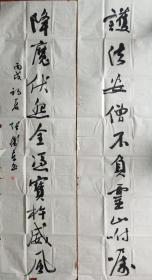 護法安僧不負靈山咐囑
降魔伏怨全憑寶杵威風
丙戌